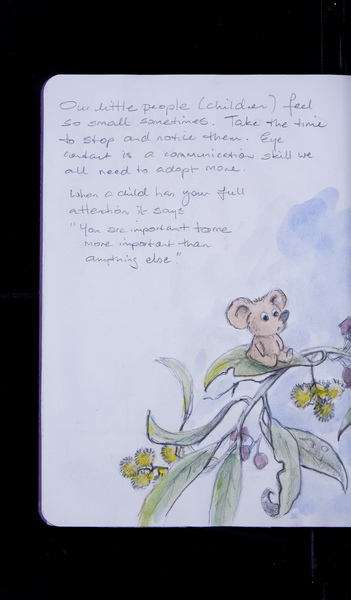 Our little people (children) feel
so small sometimes. Take the time
to stop and notice them. Eye
contact is a communication skill we
all need to adopt more.
When a child has your full
attention it says
"You are important to me
more important than
anything else."